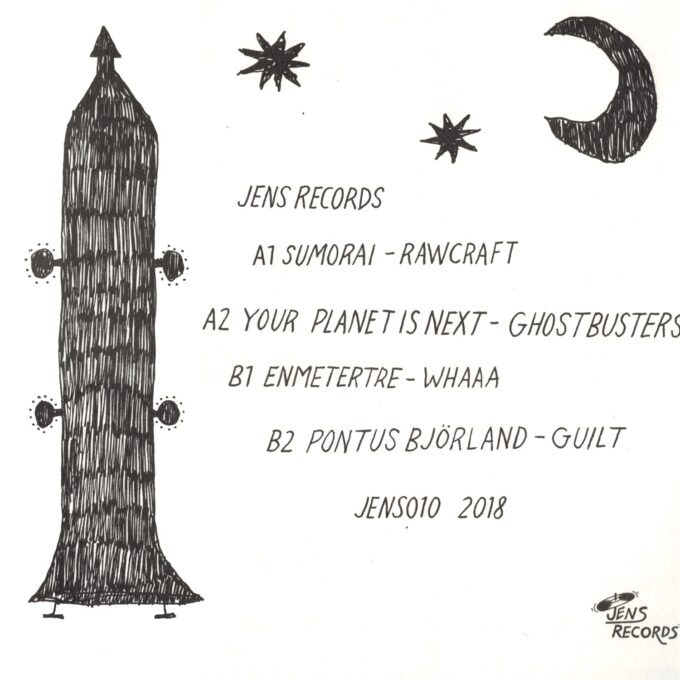 JENS RECORDS
A1 SUMORAI - RAWCRAFT
A2 YOUR PLANET IS NEXT - GHOSTBUSTERS
B1 ENMETERTRE - WHAAA
B2 PONTUS BJÖRLAND - GUILT
JENS010 2018
JENS
RECORDS